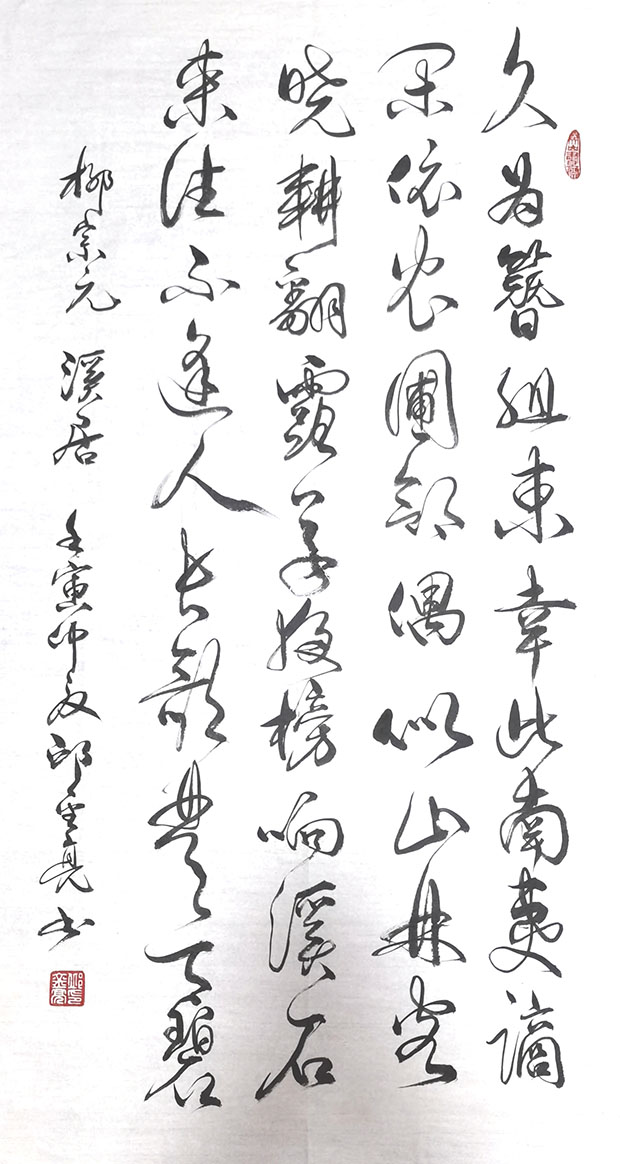 久为簪组束幸此南夷谪
闲依农圃邻偶似山林客
晓耕翻露草夜榜响溪石
来往不逢人长歌楚天碧
柳宗元 溪居 壬寅仲夏邱亮书